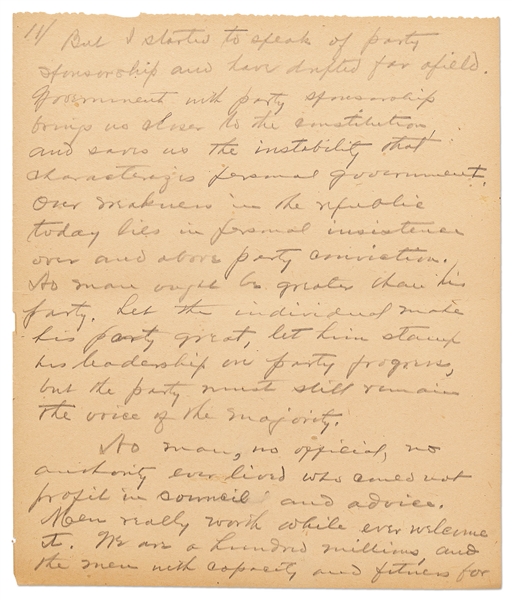 11/ But I started to speak of party
sponsorship and have drifted far afield.
Government with party sponsorship
brings us closer to the constitution,
and saves us the instability that
characterizes personal government.
Our weakness in the republic
today lies in personal insistence
over and above party conviction.
No man ought be greater than his
party. Let the individual make
his party great, let him stamp
his leadership on party progress,
but the party must still remain
the voice of the majority.
No man, no official, no
authority ever lived who could not
profit in council and advice.
Men really worth while ever welcome
it. We are a hundred millions, and
the men with capacity and fitness for